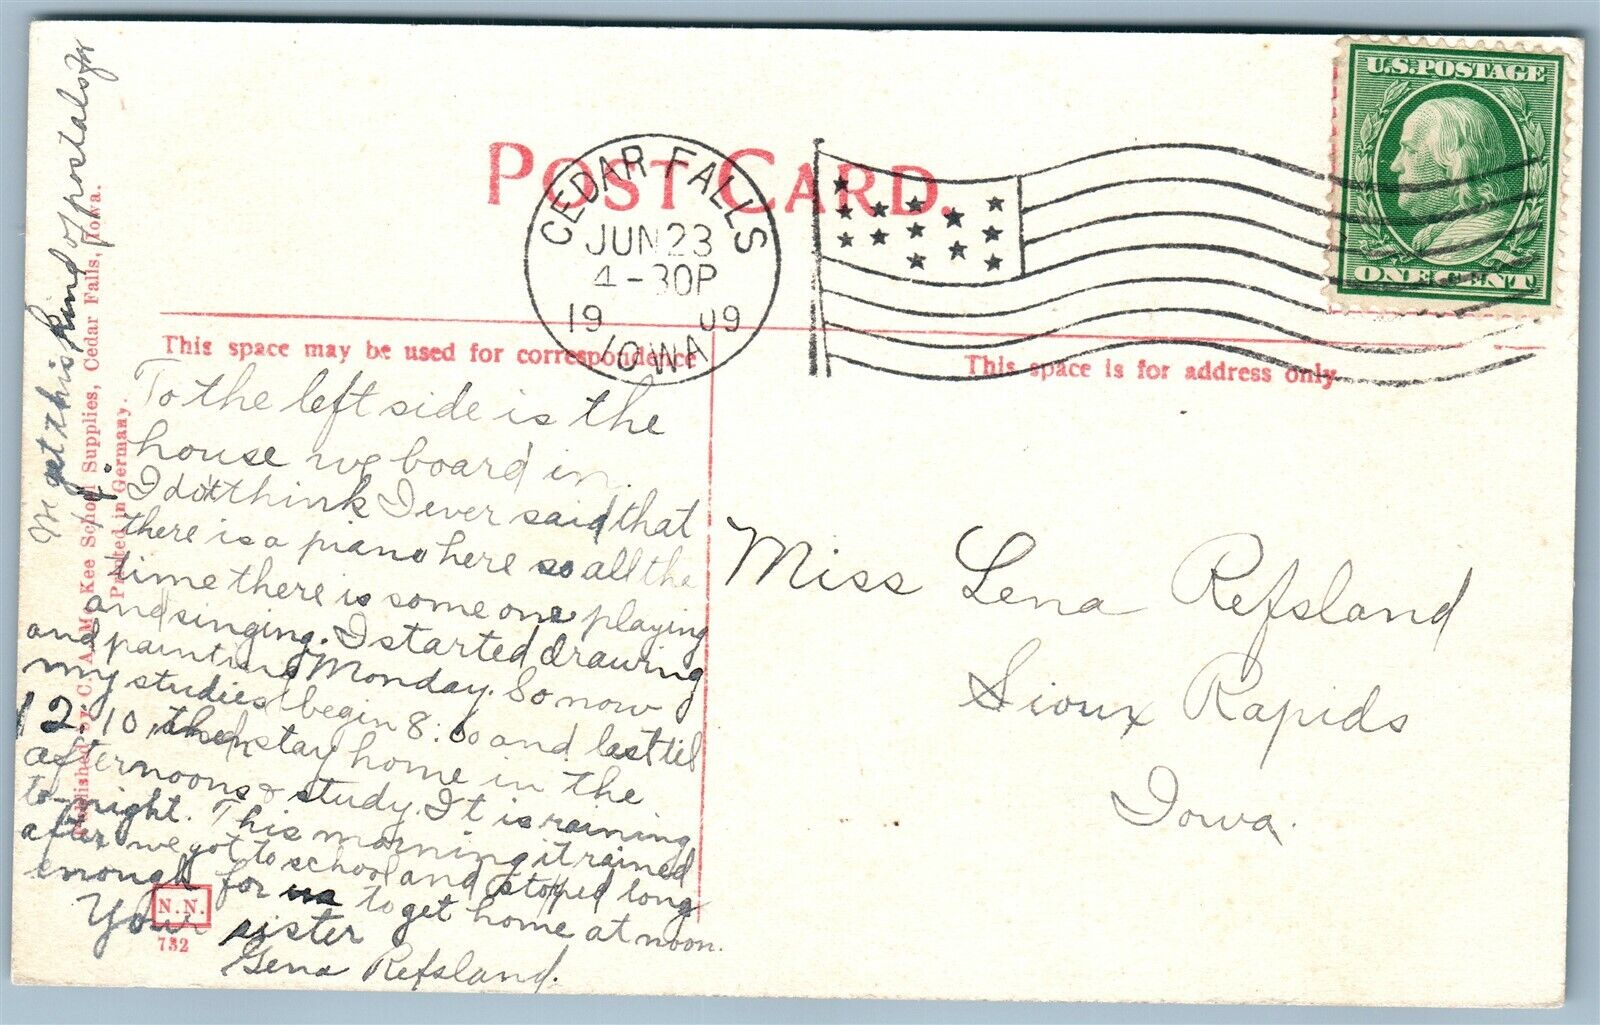 POST CARD.
CEDAR FALLS
JUN 23
4-30P
1909
IOWA
U.S. POSTAGE
ONE CENT
This space may be used for correspondence
This space is for address only.
To the left side is the
house we board in.
I don't think I ever said that
there is a piano here so all the
time there is some one playing
and singing. I started drawing
and painting Monday. So now
my studies begin 8:00 and last til
12:10, then stay home in the
afternoons & study. It is raining
to-night. This morning it rained
after we got to school and stopped long
enough for us to get home at noon.
Your sister
Gena Refsland.
We get this kind of postals for
1¢.
Miss Lena Refsland
Sioux Rapids
Iowa.
Published by C. A. McKee School Supplies, Cedar Falls, Iowa.
Printed in Germany.
N.N.
732